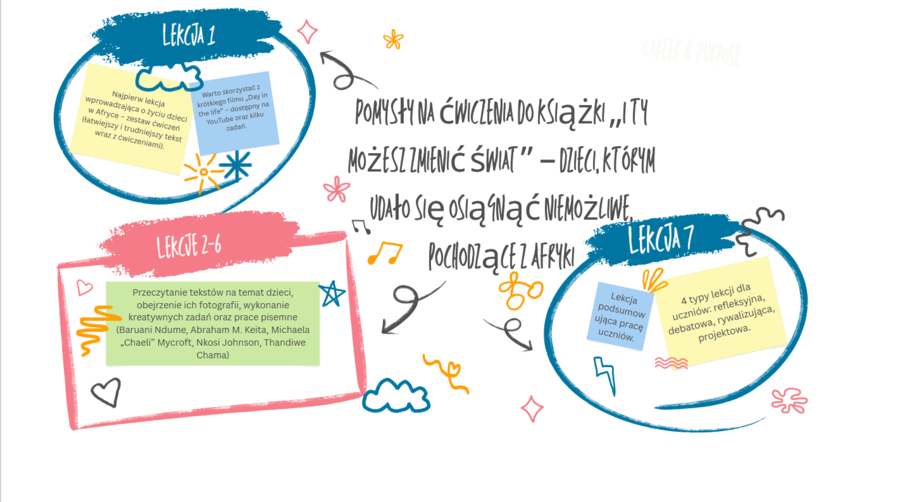 LEKCJA 1
Najpierw lekcja
wprowadzająca o życiu dzieci
w Afryce – zestaw ćwiczeń
(łatwiejszy i trudniejszy tekst
wraz z ćwiczeniami).
Warto skorzystać z
krótkiego filmu „Day in
the life" – dostępny na
YouTube oraz kilku
zadań.
CAREER & PURPOSE
POMYSŁY NA ĆWICZENIA DO KSIĄŻKI „I TY
MOŻESZ ZMIENIĆ ŚWIAT” – DZIECI, KTÓRYM
UDAŁO SIĘ OSIĄGNĄĆ NIEMOŻLIWE,
POCHODZĄCE Z AFRYKI
LEKCJE 2-6
Przeczytanie tekstów na temat dzieci,
obejrzenie ich fotografii, wykonanie
kreatywnych zadań oraz prace pisemne
(Baruani Ndume, Abraham M. Keita, Michaela
„Chaeli” Mycroft, Nkosi Johnson, Thandiwe
Chama)
LEKCJA 7
Lekcja
podsumow
ująca pracę
uczniów.
4 typy lekcji dla
uczniów: refleksyjna,
debatowa, rywalizująca,
projektowa.